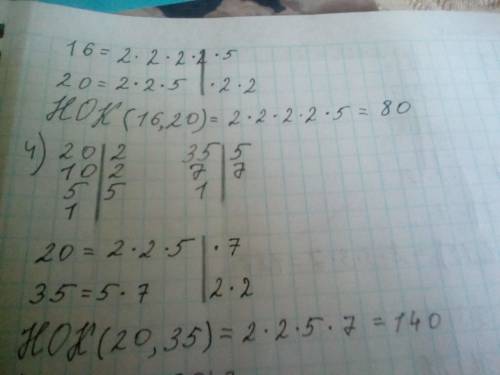 16 = 2 · 2 · 2 · 2 | · 5
20 = 2 · 2 · 5 | · 2 · 2
НОК (16,20) = 2 · 2 · 2 · 2 · 5 = 80
4) 20 | 2 35 | 5
10 | 2 7 | 7
5 | 5 1
1
20 = 2 · 2 · 5 | · 7
35 = 5 · 7 | 2 · 2
НОК (20, 35) = 2 · 2 · 5 · 7 = 140